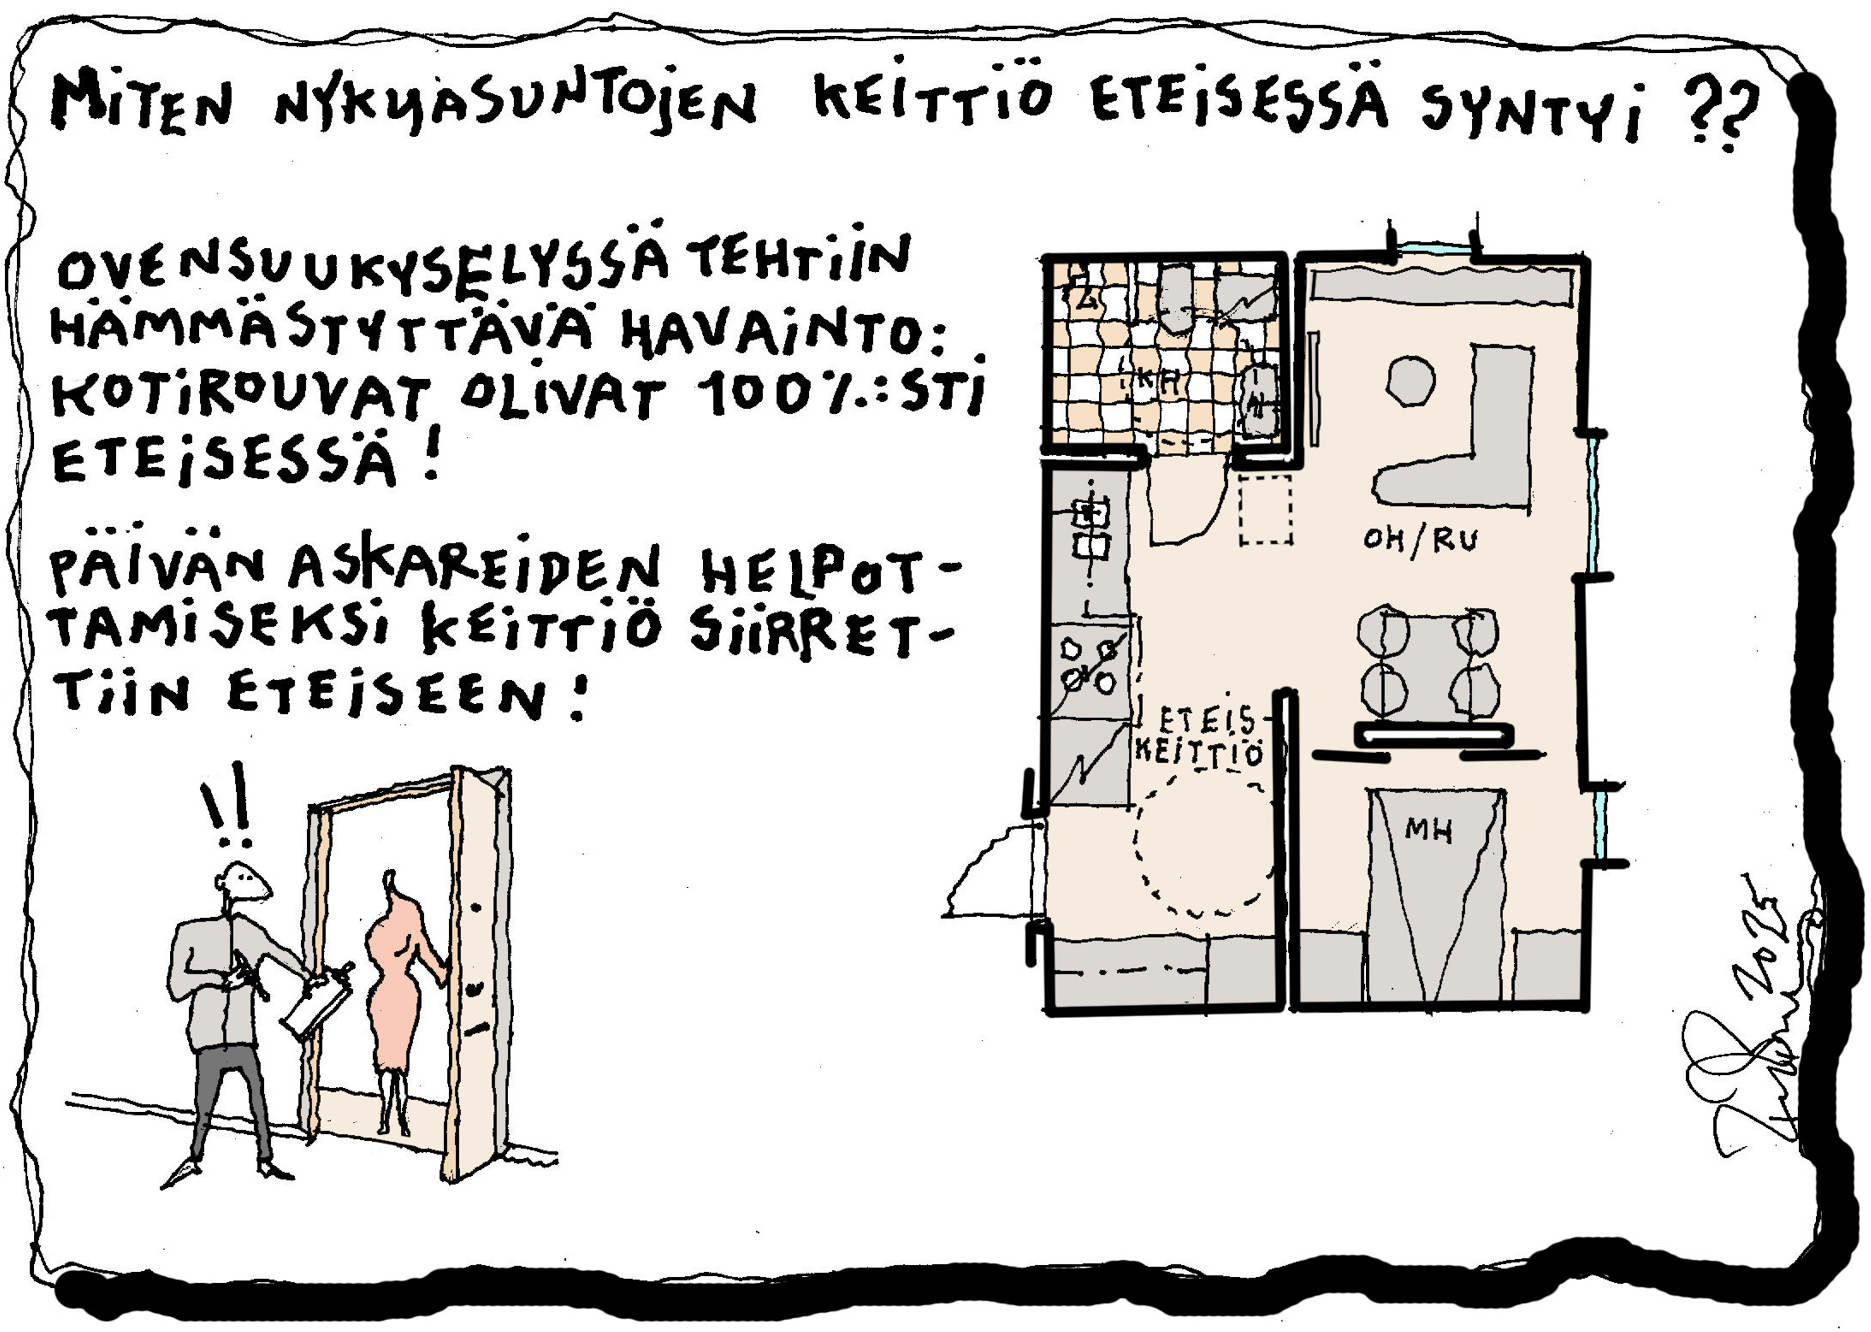 MiTEN NYKYASUNTOJEN KEITTIÖ ETEISESSÄ SYNTYI ??
OVENSUUKYSELYSSÄ TEHTIIN
HÄMMÄSTYTTÄVÄ HAVAINTO:
KOTIROUVAT OLIVAT 100%:STI
ETEISESSÄ!
PÄIVÄN ASKAREIDEN HELPOT-
TAMISEKSI KEITTIÖ SIIRRET-
TIIN ETEISEEN!
!!
KH
OH/RU
ETEIS-
KEITTIÖ
MH
2025